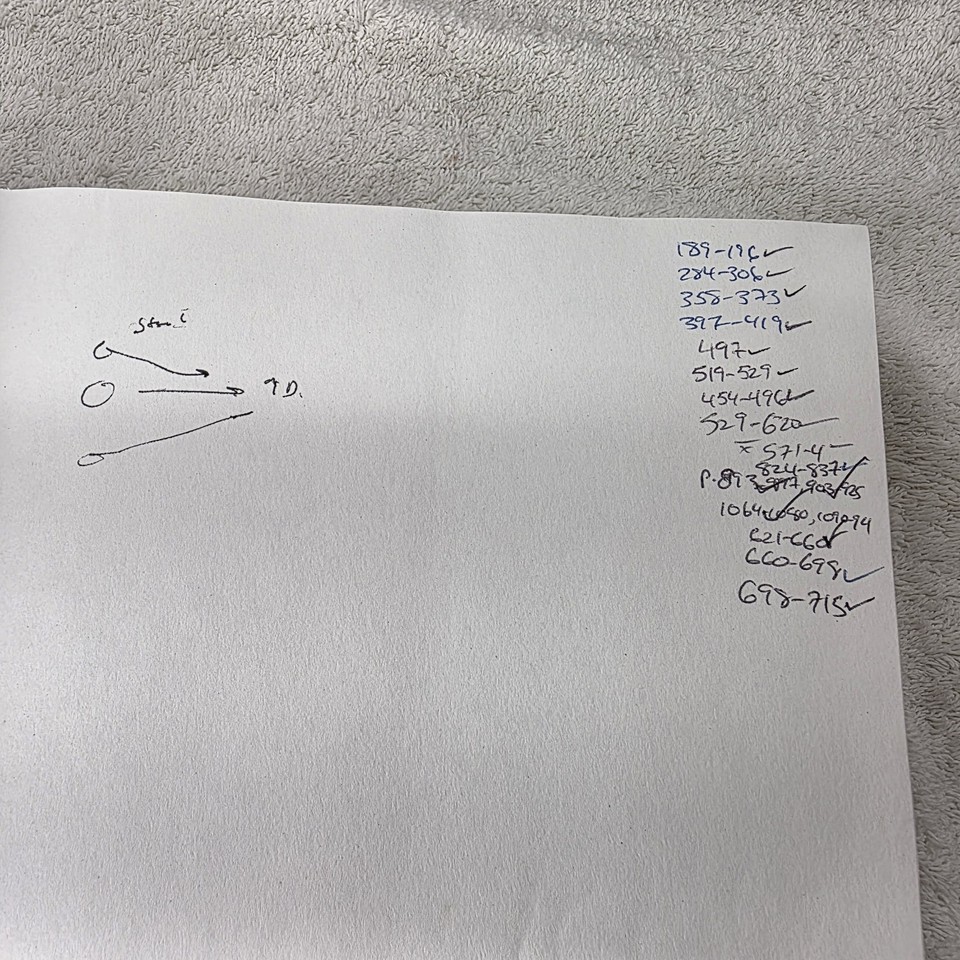 ↑ D.
189-196✓
284-306✓
358-373✓
397-419✓
497✓
519-529✓
454-496✓
529-620
571-4
824-837✓
P. 893, 903, 925
1064-1080, 1090-94
621-660✓
660-698✓
698-715✓